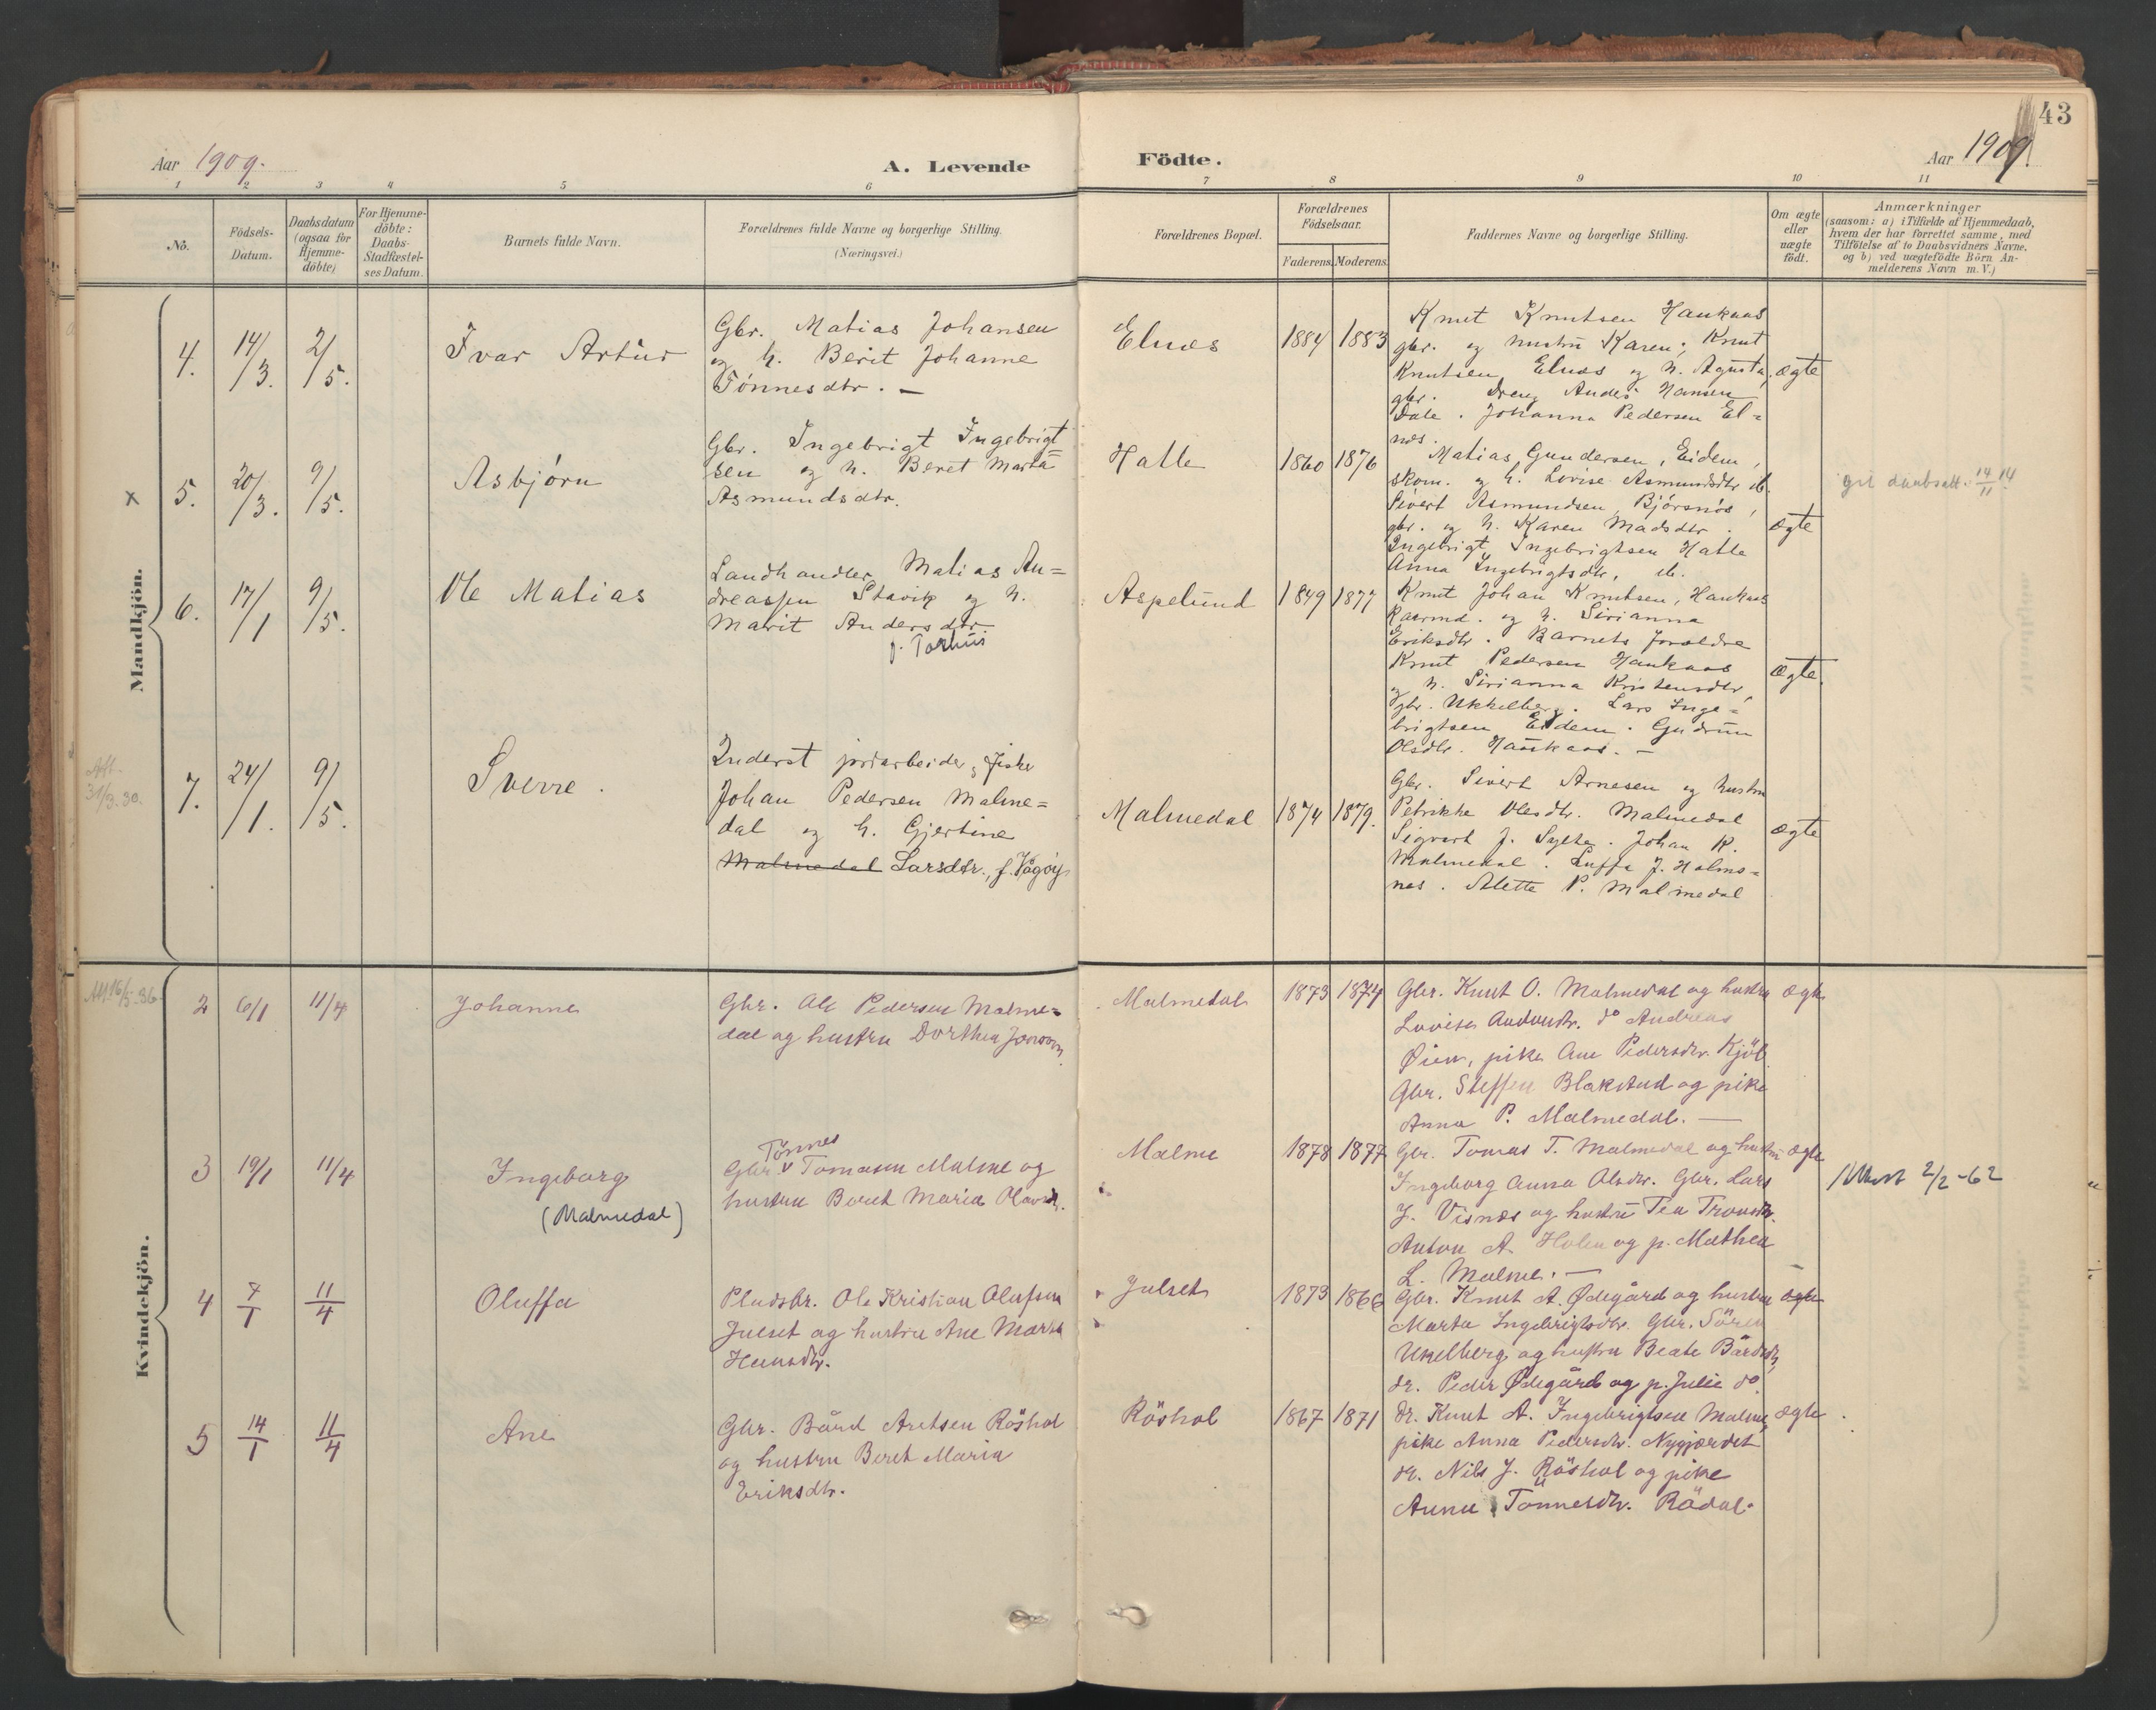 43
Aar 1909.
A. Levende
Födte.
Aar 1909.
1 2 3 4 5 6 7 8 9 10 11
No.
Födsels-
Datum.
Daabsdatum
(ogsaa for
Hjemme-
döbte)
For Hjemme-
döbte:
Daabs-
Stadfæstel-
ses Datum.
Barnets fulde Navn.
Forældrenes fulde Navne og borgerlige Stilling.
(Næringsvei.)
Forældrenes Bopæl.
Forældrenes
Födselsaar.
Faderens. Moderens.
Faddernes Navne og borgerlige Stilling.
Om ægte
eller
uægte
födt.
Anmærkninger
(saasom: a) i Tilfælde af Hjemmedaab,
hvem der har forrettet samme, med
Tilföielse af to Daabsvidners Navne,
og b) ved uægtefödte Börn An-
melderens Navn m. V.)
Mandkjön.
4. 14/3. 2/5.
Ivar Artur
Gbr. Matias Johansen
og h. Berit Johanne
Tönnesdtr. —
Elnæs
1884 1883
Knut Knutsen Haukaas
gbr. og hustru Karen; Knut
Knutsen Elnæs og h. Agusta,
gbr. Dreng Andes Hansen
Dale. Johanna Pedersen El=
næs.
ægte
x 5. 20/3. 9/5.
Asbjörn
Gbr. Ingebrigt Ingebrigt=
sen og h. Beret Marta
Asmundsdtr.
Halle
1860 1876
Matias Gundersen, Eidem,
skom. og h. Lovise Asmundsdtr. ib.
Sivert Asmundsen, Björsnös,
gbr. og h. Karen Madsdtr.
Ingebrigt Ingebrigtsen Halle
Anna Ingebrigtsdtr, ib.
ægte
git daabsatt. 14/11 14
6. 17/1 9/5.
Ole Matias
Landhandler Matias An=
dreassen Stavik og h.
Marit Andersdtr
f. Torhus
Aspelund
1849 1877
Knut Johan Knutsen, Haukaas
og h. Sirianna
Eriksdtr. Barnets Foraldre
Knut Pedersen Haukaas
og h. Sirianna Kristensdtr,
gbr. Ukkelberg. Lars Inge=
brigtsen Eidem. Gudrun
Olsdtr. Haukaas. —
ægte.
31/3.30.
7. 24/1. 9/5.
Sverre.
Inderst jordarbeider, fisker
Johan Pedersen Malme=
dal og h. Gjertine
Malmedal Larsdtr., f. Vågöy
Malmedal
1874 1879.
Gbr. Sivert Arnesen og hustru
Petrikke Olesdtr. Malmedal
Sigvart J. Sylte. Johan P.
Malmedal. Luffa J. Holms=
nes. Alette P. Malmedal
ægte
Kvindekjön.
Att. 16/5.36.
2 6/1 11/4
Johanne
Gbr. Ole Pedersen Malme=
dal og hustru Dorthea
Malmedal
1873 1874
Gbr. Knut O. Malmedal og hustru
Lovise do Andreas
Øien, pike Ane Pedersdtr. Kjöl
Gbr. Steffen Blakstad og pike
Anna P. Malmedal. —
ægte
3 19/1 11/4
Ingeborg
(Malmedal)
Tönnes
Gbr. v Tomasen Malme og
hustru Beret Maria Olavsdtr.
Malme
1878 1877
Gbr. Tomas T. Malmedal og hustru
Ingeborg Anna Olsdtr. Gbr. Lars
J. Visnes og hustru Tea Tronsdtr.
Anton A. Holen og p. Mathea
L. Malme. —
ægte
2/2-62
4 7/1 11/4
Oluffa
Pladsbr. Ole Kristian Olufsen
Julset og hustru Ane Marta
Hansdtr.
Julset
1873 1866
Gbr. Knut A. Ødegård og hustru
Marta Ingebrigtsdtr. Gbr. Sören
Ukelberg og hustru Beate Bårdsdtr,
dr. Peder Ødegård og p. Julie do.
ægte
5 14/1 11/4
Ane
Gbr. Bård Aretsen Röshol
og hustru Beret Maria
Eriksdtr.
Röshol
1867 1871
Dr. Knut A. Ingebrigtsen Malme,
pike Anna Pedersdtr. Nygjerdet
dr. Nils J. Röshol og pike
Anna Tönnesdtr. Rödal.
ægte.